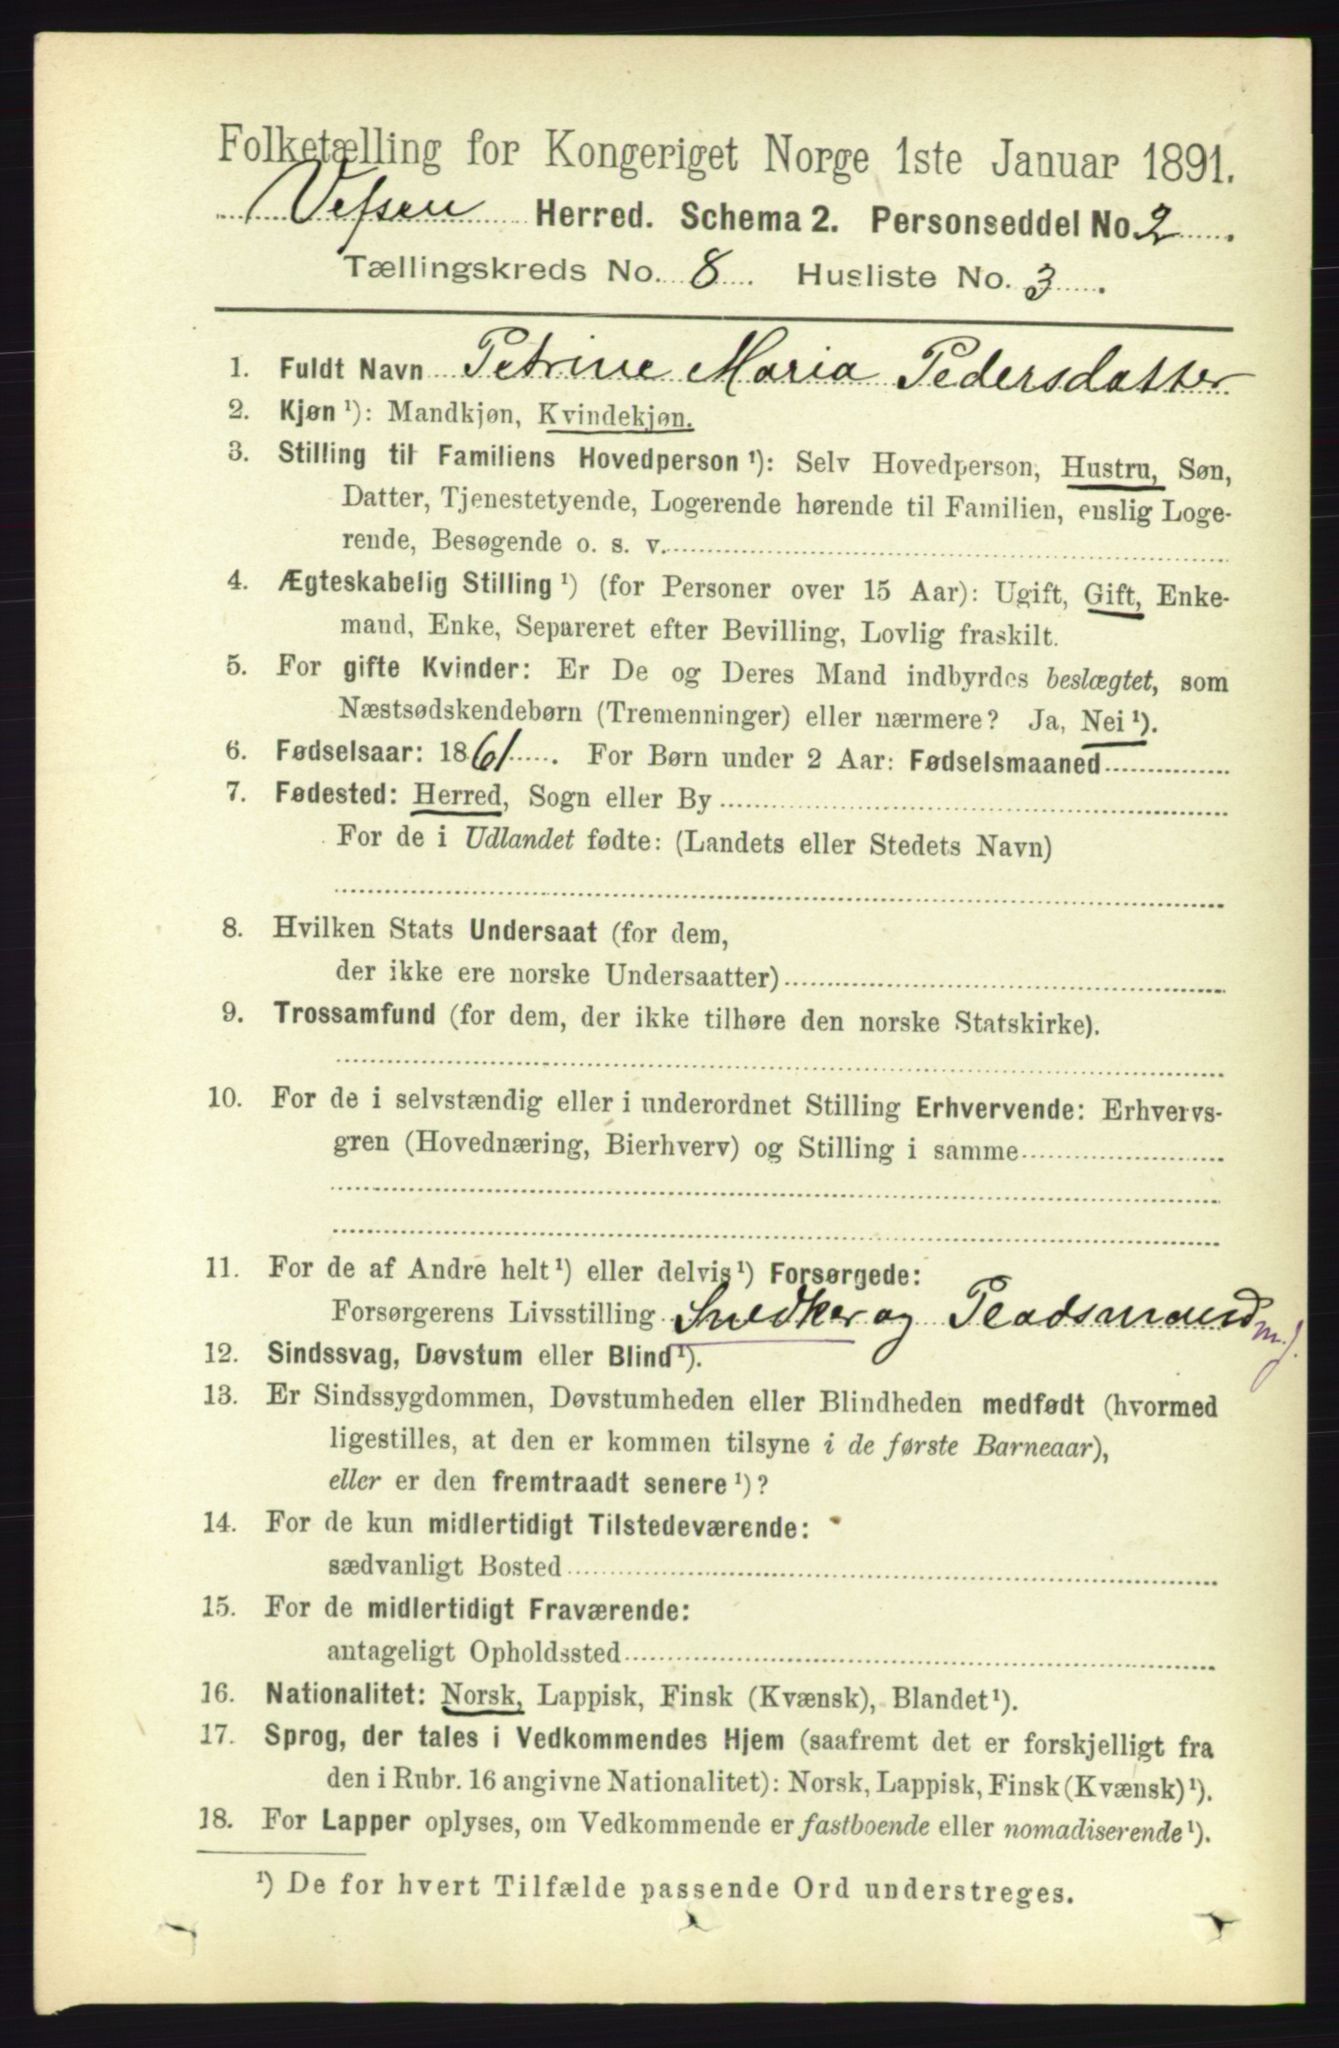 Folketælling for Kongeriget Norge 1ste Januar 1891.
Vefsen Herred. Schema 2. Personseddel No. 2
Tællingskreds No. 8. Husliste No. 3.
1. Fuldt Navn Petrine Maria Pedersdatter
2. Kjøn ¹): Mandkjøn, Kvindekjøn.
3. Stilling til Familiens Hovedperson ¹): Selv Hovedperson, Hustru, Søn,
Datter, Tjenestetyende, Logerende hørende til Familien, enslig Loge-
rende, Besøgende o. s. v.
4. Ægteskabelig Stilling ¹) (for Personer over 15 Aar): Ugift, Gift, Enke-
mand, Enke, Separeret efter Bevilling, Lovlig fraskilt.
5. For gifte Kvinder: Er De og Deres Mand indbyrdes beslægtet, som
Næstsødskendebørn (Tremenninger) eller nærmere? Ja, Nei ¹).
6. Fødselsaar: 1861. For Børn under 2 Aar: Fødselsmaaned
7. Fødested: Herred, Sogn eller By
For de i Udlandet fødte: (Landets eller Stedets Navn)
8. Hvilken Stats Undersaat (for dem,
der ikke ere norske Undersaatter)
9. Trossamfund (for dem, der ikke tilhøre den norske Statskirke).
10. For de i selvstændig eller i underordnet Stilling Erhvervende: Erhvervs-
gren (Hovednæring, Bierhverv) og Stilling i samme
11. For de af Andre helt ¹) eller delvis ¹) Forsørgede:
Forsørgerens Livsstilling Snedker og Pladsmand m.j.
12. Sindssvag, Døvstum eller Blind ¹).
13. Er Sindssygdommen, Døvstumheden eller Blindheden medfødt (hvormed
ligestilles, at den er kommen tilsyne i de første Barneaar),
eller er den fremtraadt senere ¹)?
14. For de kun midlertidigt Tilstedeværende:
sædvanligt Bosted
15. For de midlertidigt Fraværende:
antageligt Opholdssted
16. Nationalitet: Norsk, Lappisk, Finsk (Kvænsk), Blandet ¹).
17. Sprog, der tales i Vedkommendes Hjem (saafremt det er forskjelligt fra
den i Rubr. 16 angivne Nationalitet): Norsk, Lappisk, Finsk (Kvænsk) ¹).
18. For Lapper oplyses, om Vedkommende er fastboende eller nomadiserende ¹).
¹) De for hvert Tilfælde passende Ord understreges.